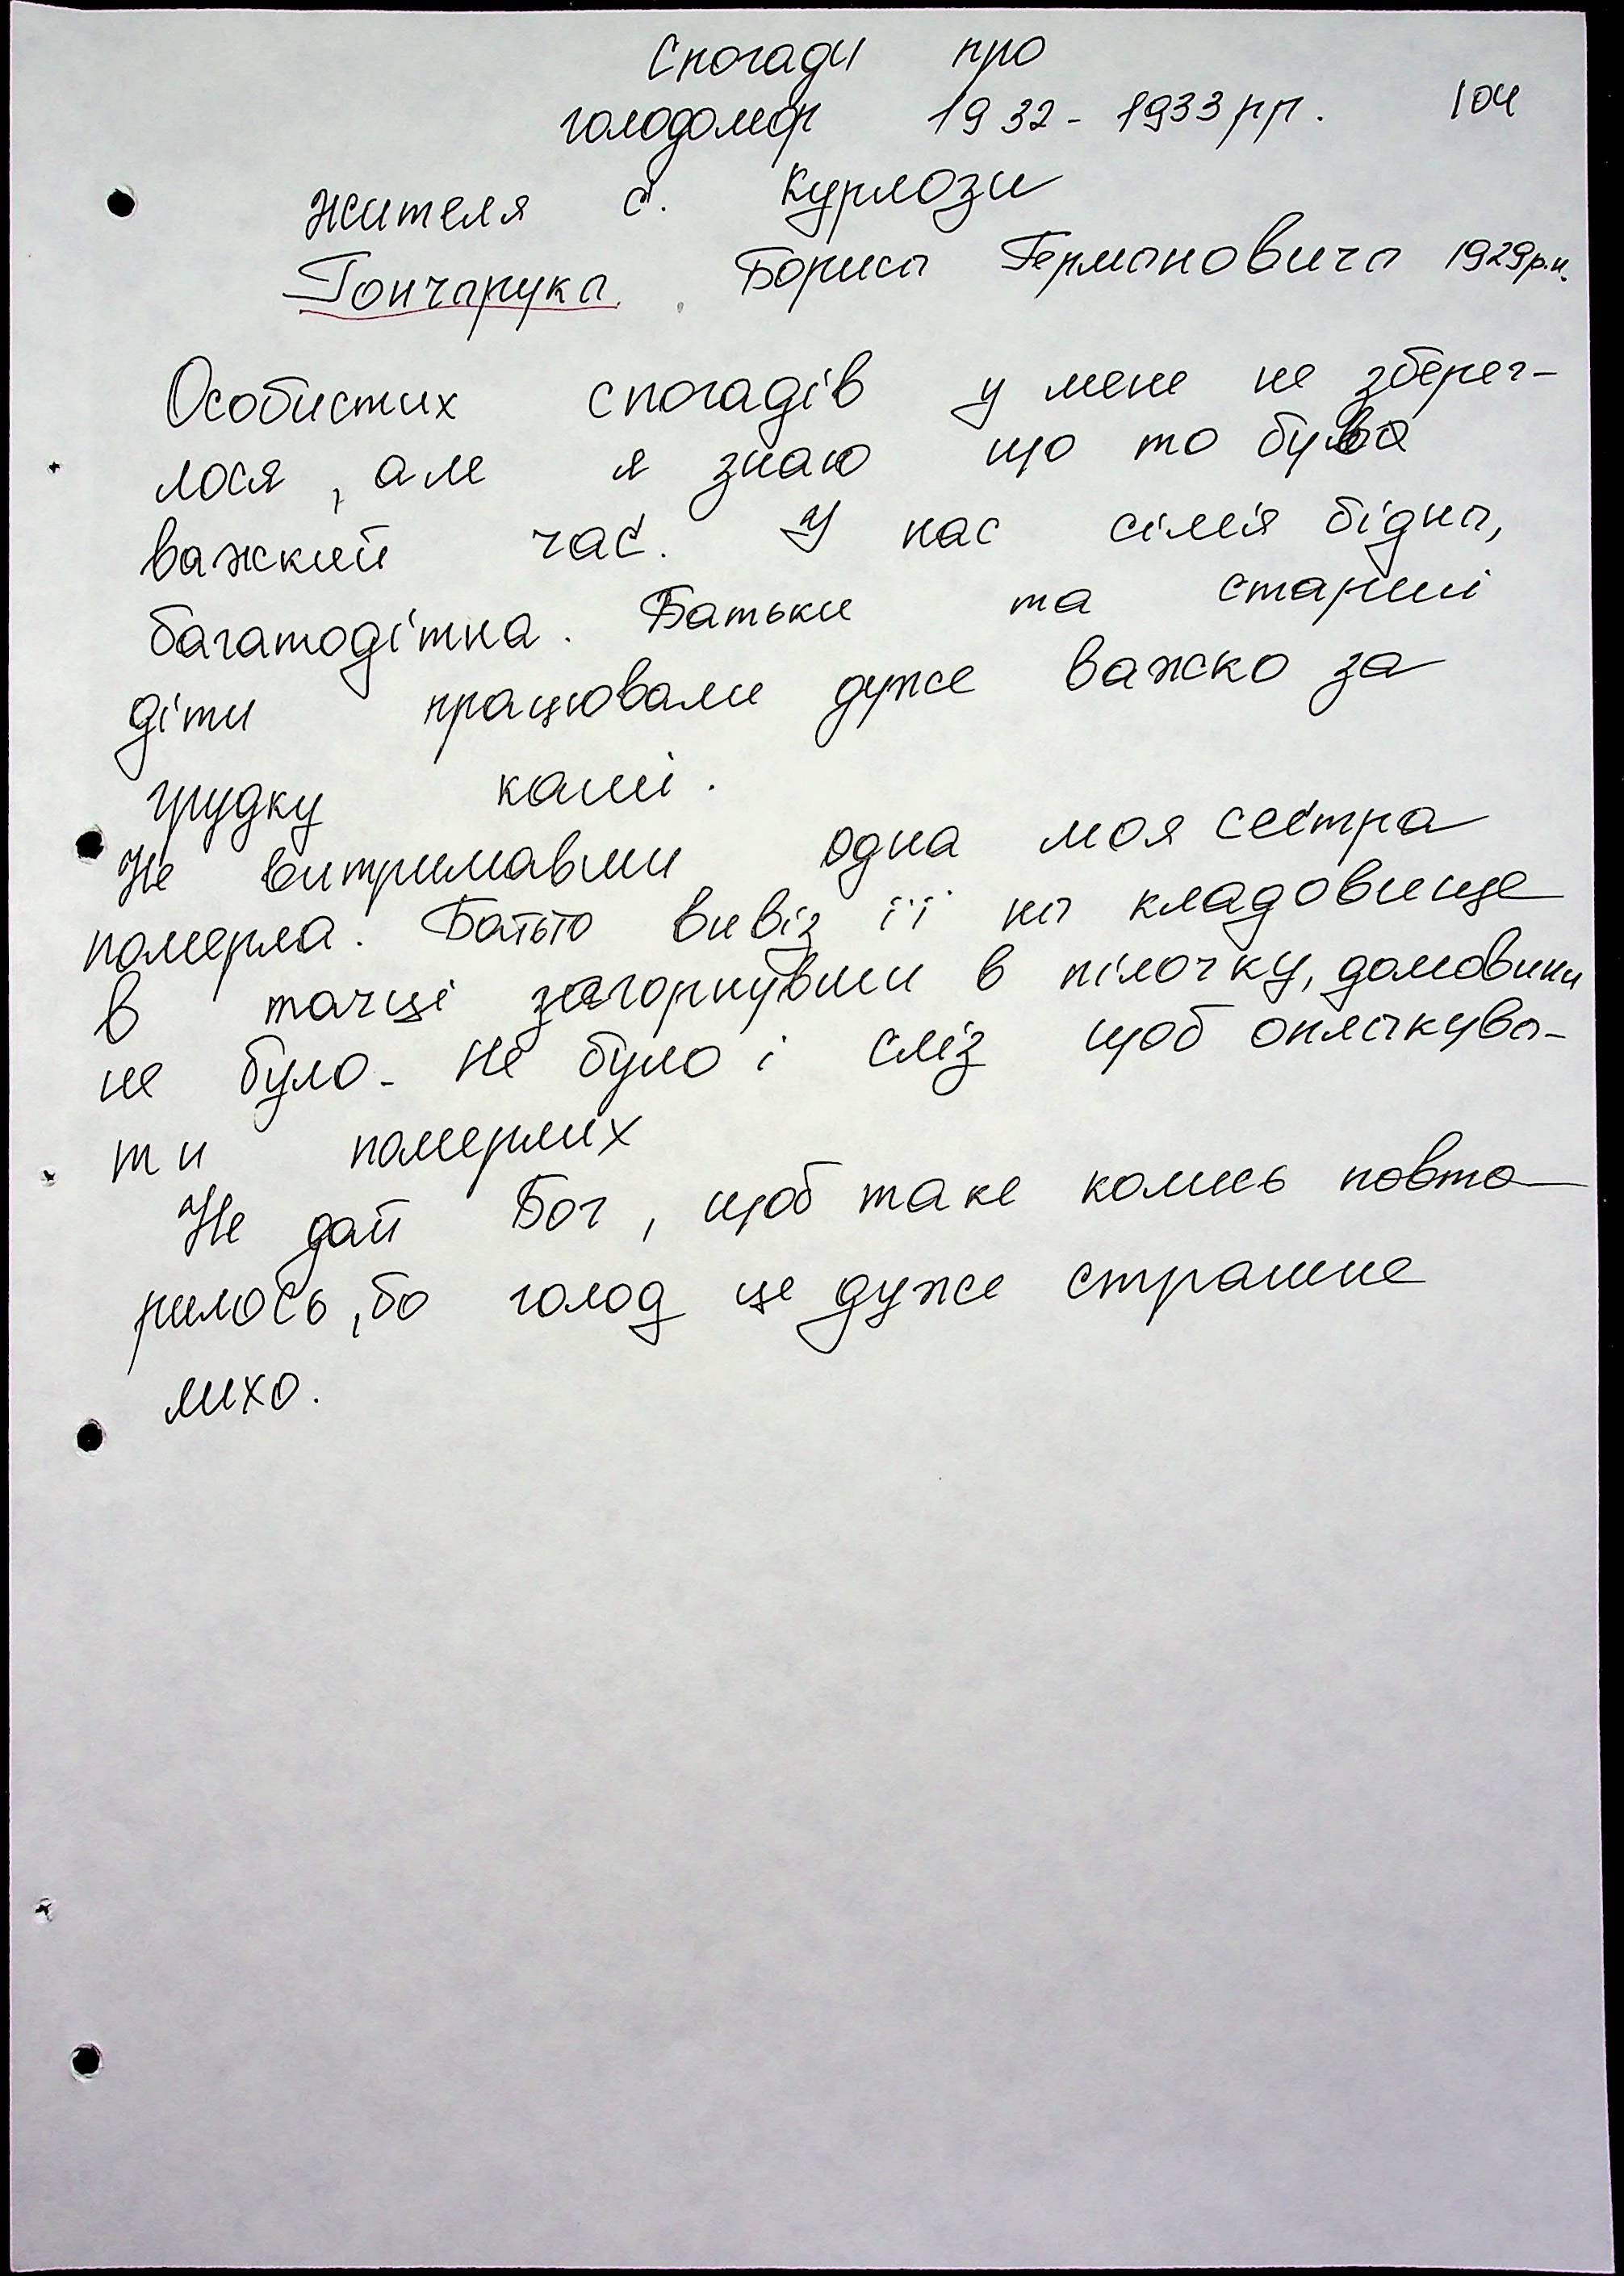 Спогади про
голодомор 1932-1933 рр. 104
жителя с. Курлози
Гончарука Бориса Германовича 1929р.н.
Особистих спогадів у мене не зберег-
лося, але я знаю що то був
важкий час. У нас сімія бідна,
багатодітна. Батьки та старші
діти працювали дуже важко за
грудку каші.
Не витримавши одна моя сестра
померла. Батько вивіз її на кладовище
в тачці загорнувши в пілочку, домовини
не було. Не було і сліз щоб оплакува-
ти померлих
Не дай Бог, щоб таке колись повто-
рилось, бо голод це дуже страшне
лихо.